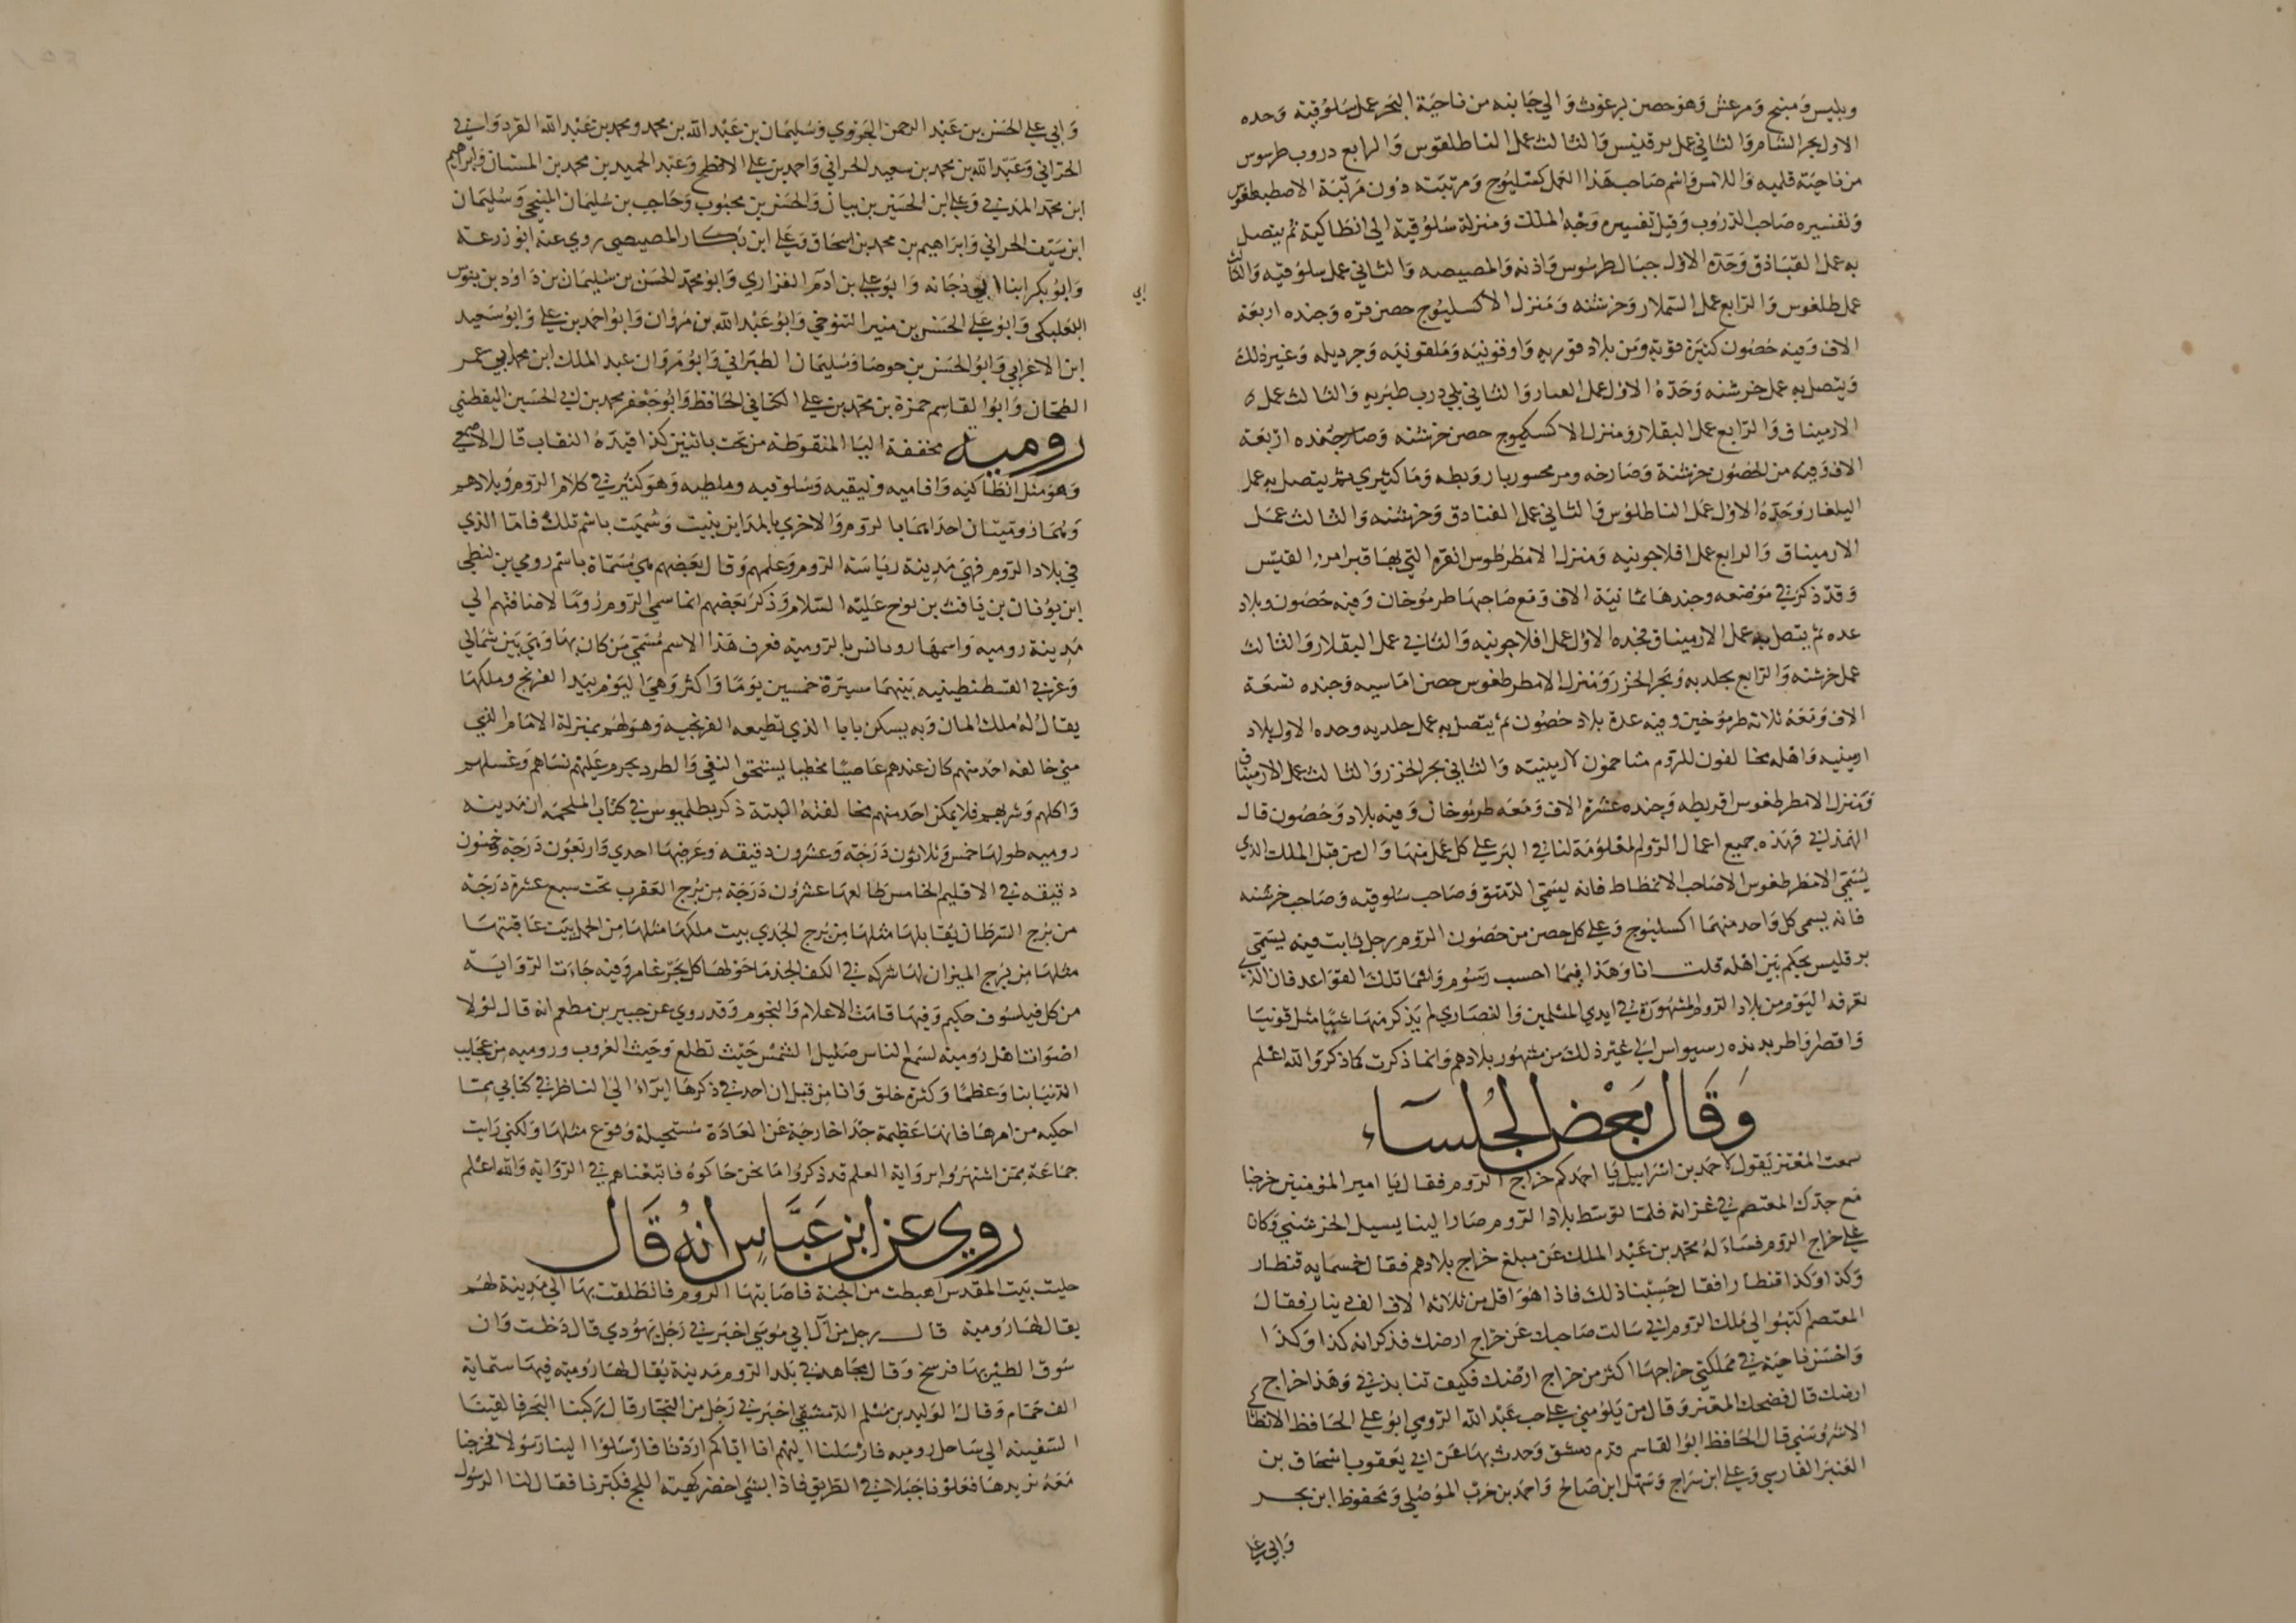 وبليس ومنبج ومرعش وهو حصن برغوث والي جانبه من ناحية البحر عمل سلوقية وحده
الاول بحر الشام والثاني عمل برقنيس والثالث عمل الناطلقوس والرابع دروب طرسوس
من ناحية قلميه واللامس واسم صاحب هذا العمل كسليوج ومرتبته دون مرتبة الاصطبطغوس
وتفسيره صاحب الدروب وقيل تفسيره وجه الملك ومنزلة سلوقية الي انطاكية ثم يتصل
به عمل القباذق وحده الاول جبال طرسوس واذنه والمصيصه والثاني عمل سلوقيه والثالث
عمل طلغوس والرابع عمل السملار وخرشنه ومنزل الاكسليوج حصن قره وجنده اربعة
الاف وفيه حصون كثيرة قوية ومن بلاد قوريه واوقونيه وملقونيه وجرديله وغير ذلك
ويتصل به عمل خرشنه وحده الاول عمل العبار والثاني يلي درب طبريه والثالث عمل
الارميناق والرابع عمل البقلار ومنزل الاكسكيوج حصن خرشنه وصار جنده اربعة
الاف وفيه من الحصون خرشنة وصارخه ومرمحسور باروبطه وماكثيري ثم يتصل به عمل
البلغار وحده الاول عمل الناطلوس والثاني عمل القتادق وخرشنه والثالث عمل
الارميناق والرابع عمل افلاجونيه ومنزل الامطرطوس انقره التي بها قبر امرء القيس
وقد ذكر في موضعه وجندها ثمانية الاف ومع صاحبها طرموخان وفيه حصون وبلاد
عده ثم يتصل به عمل الارميناق فحده الاول عمل افلاجونيه والثاني عمل البقلار والثالث
عمل خرشنه والرابع بجلدبه وبحر الخزر ومنزل الامطرطغوس حصن اماسيه وجنده تسعة
الاف ومعه ثلاثه طرموخين وفيه عدة بلاد حصون ثم يتصل به عمل جلديه وحده الاول بلاد
ارمينيه واهله مخالفون للروم متاخمون لارمينية والثاني بحر الخزر والثالث عمل الارميناق
ومنزل الامطرطغوس اقريطه وجنده عشرة الاف ومعه طرموخان وفيه بلاد وحصون قال
الهمذاني فهذه جميع اعمال الروم المعلومة لنا في البر علي كل عمل منها وال من قبل الملك الذي
يسمي الامطرطغوس الا صاحب الانطماط فانه يسمي الدمستق وصاحب سلوقيه وصاحب خرشنه
فانه يسمي كل واحد منهما اكسليوج وعلي كل حصن من حصون الروم رجل ثابت فيه يسمي
برقليس يحكم بين اهله قلت انا وهذا فيما احسب رسوم واسما تلك القواعد فان الذي
نعرفه اليوم من بلاد الروم المشهورة في ايدي المسلمين والنصاري لم يذكر منها شيا مثل قونيا
واقصرا واطربدنده وسيواس الي غير ذلك من مشهور بلادهم وانما ذكرت كما ذكر والله اعلم
وقال بعض الجلساء
سمعت المعتز يقول لاحمد بن اسرائيل يا احمد كم خراج الروم فقال يا امير المؤمنين خرجنا
مع جدك المعتصم في غزاته فلما توسط بلاد الروم صار الينا بسيل الخرشني وكان
علي خراج الروم فساله محمد بن عبد الملك عن مبلغ خراج بلادهم فقال خمسمايه قنطار
وكذا وكذا قنطارا فقال حسبنا ذلك فاذا هو اقل من ثلاثه الاف الف دينار فقال
المعتصم اكتبوا الي ملك الروم اني سالت صاحبك عن خراج ارضك فذكر انه كذا وكذا
واخسن ناحية في مملكتي خراجها اكثر من خراج ارضك فكيف تنابذني وهذا خراج
ارضك قال فضحك المعتز وقال من يلومني علي حب عبد الله الرومي ابو علي الحافظ الانطاكي
الاشروسني قال الحافظ ابو القاسم قدم دمشق وحدث بها عن ابي يعقوب اسحاق بن
العنبر الفارسي وعلي ابن سراج وسهل ابن صالح واحمد بن حرب الموصلي ومحفوظ ابن بحر
وابي علي
وابي علي الحسن بن عبد الرحمن الجزوي وسليمان بن عبد الله بن محمد ومحمد بن عبد الله القردواني
الحراني وعبد الله بن محمد بن سعيد الحراني واحمد بن علي الافطح وعبد الحميد بن محمد بن المستان وابراهيم
ابن محمد المدني وعلي ابن الحسين بن بيان والحسن بن محبوب وحاجب بن سليمان المنبجي وسليمان
ابن سيف الحراني وابراهيم بن محمد بن اسحاق وعلي ابن بكار المصيصي روي عنه ابو زرعة
وابو بكر ابنا ابي دجانه وابو علي بن ادم الفزاري وابو محمد الحسن بن سليمان بن داود بن بنوس
ابي
البعلبكي وابو علي الحسن بن منير التنوخي وابو عبد الله بن مروان وابو احمد بن علي وابو سعيد
ابن الاعرابي وابو الحسن بن جوصا وسليمان الطبراني وابو مروان عبد الملك ابن محمد بن عمر
الطحان وابو القاسم حمزة بن محمد بن علي الكناني الحافظ وابو جعفر محمد بن ابي الحسين اليقطيني
رومية مخففة اليا المنقوطه من تحت باثنين كذا قيده النقاب قال الاصمعي
وهو مثل انطاكيه وافاميه ونيقيه وسلوقيه وملطيه وهو كثير في كلام الروم وبلادهم
وهما روميتان احداهما بالروم والاخري بالمداين بنيت وسميت باسم تلك فاما الذي
في بلاد الروم فهي مدينة رياسة الروم وعلمهم وقال بعضهم هي مسماة باسم رومي بن لنطي
ابن يونان بن يافث بن نوح عليه السلام وذكر بعضهم انما سمي الروم روما لاضافتهم الي
مدينة روميه واسمها رومانس بالرومية فعرف هذا الاسم مسمي من كان بها وهي بين شمالي
وغربي القسطنطينيه بينهما مسيرة خمسين يوما واكثر وهي اليوم بيد الفرنج وملكها
يقال له ملك المان وبه يسكن بابا الذي تطيعه الفرنجيه وهو لهم بمنزلة الامام الذي
متي خالفه احد منهم كان عندهم عاصيا مخطيا يستحق النفي والطرد يحرم عليهم نساهم وغسلهم
واكلهم وشربهم فلا يمكن احد منهم مخالفته البتة ذكر بطلميوس في كتاب الملحمه ان مدينه
روميه طولها خمس وثلاثون درجة وعشرون دقيقه وعرضها احدي واربعون درجة وخمسون
دقيقه في الاقليم الخامس طالعها عشرون درجة من برج العقرب تحت سبع عشرة درجة
من برج السرطان يقابلها مثلها من برج الجدي بيت ملكها مثلها من الحمل بيت عاقبتها
مثلها من برج الميزان لها شركه في الكف الجذما حولها كل بحر غامر وفيه جاءت الرواية
من كل فيلسوف حكيم وفيها قامت الاعلام والنجوم وقد روي عن جبير بن مطعم انه قال لولا
اصوات اهل روميه لسمع الناس صليل الشمس حيث تطلع وحيث الغروب وروميه من عجايب
الدنيا بنا وعظما وكثرة خلق وانا من قبل ان احد في ذكرها ابراء الي الناظر في كتابي مما
احكيه من امرها فانها عظيمة جدا خارجة عن العادة مستحيلة وقوع مثلها ولكني رايت
جماعة ممن اشتهروا برواية العلم قد ذكروا ما نحن حاكوه فاتبعناهم في الرواية والله اعلم
روي عن ابن عباس انه قال
حليت بيت المقدس اهبطت من الجنة فاصابتها الروم فانطلقت بها الي مدينة لهم
يقال لها رومية قال رجل من آل ابي موسي اخبرني رجل يهودي قال دخلت وان
سوق الطير بها فرسخ وقال مجاهد في بلد الروم مدينة يقال لها رومية فيها ستماية
الف حمام وقال الوليد بن مسلم الدمشقي اخبرني رجل من التجار قال ركبنا البحر فالقينا
السفينه الي ساحل روميه فارسلنا اليهم انا اياكم اردنا فارسلوا الينا رسولا فخرجنا
معه نريدها فعلونا جبلا في الطريق فاذا بشي اخضر كهية اللج فكبرنا فقال لنا الرسول